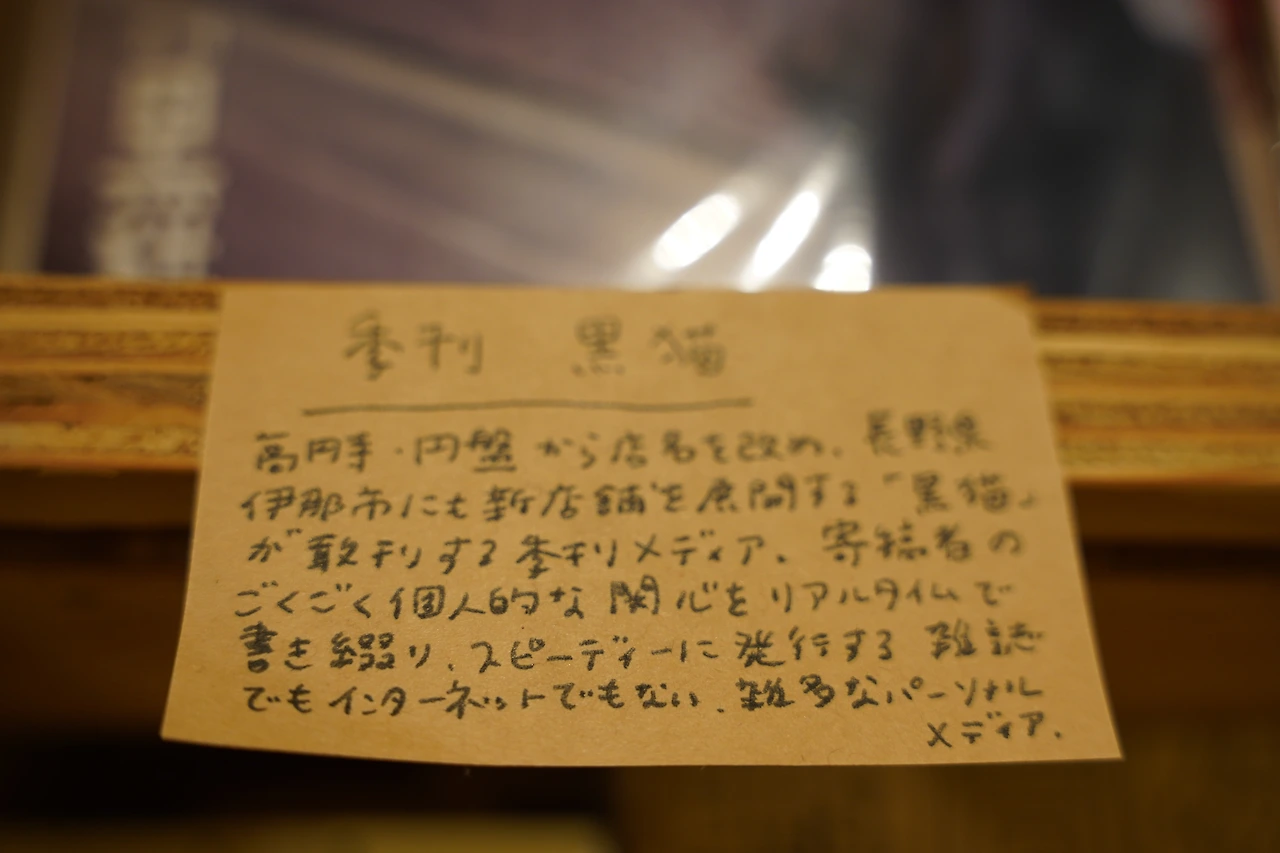 季刊 黒猫
高円寺・円盤から店名を改め、長野県
伊那市にも新店舗を展開する「黒猫」
が敢刊する季刊メディア。寄稿者の
ごくごく個人的な関心をリアルタイムで
書き綴り、スピーディーに発行する 雑誌
でもインターネットでもない、雑多なパーソナル
メディア。